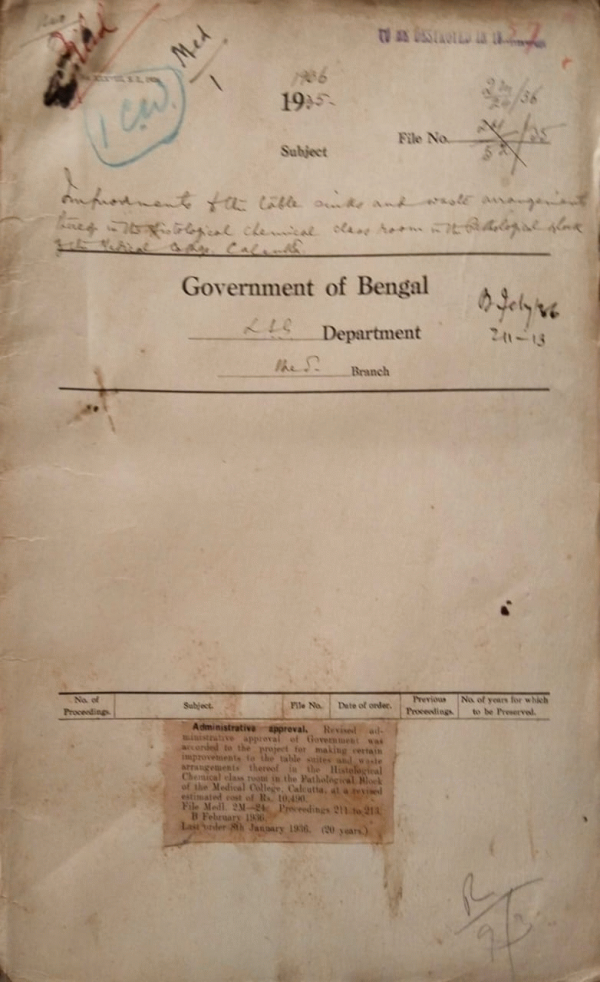 Filed
Med
1
TO BE DESTROYED IN 19
1 C.W.
1936
1935-
2M/24/36
File No. 24/52/35
Subject
Improvements to the table sinks and waste arrangements
thereof in the Histological Chemical class room in the Pathological Block
of the Medical College, Calcutta.
Government of Bengal
B Feby/36
L.S.G Department
211-13
Med. Branch
No. of Proceedings. Subject. File No. Date of order. Previous Proceedings. No. of years for which to be Preserved.
Administrative approval. Revised ad-
ministrative approval of Government was
accorded to the project for making certain
improvements to the table suites and waste
arrangements thereof in the Histological
Chemical class room in the Pathological Block
of the Medical College, Calcutta, at a revised
estimated cost of Rs. 10,490.
File Medl. 2M—24. Proceedings 211 to 213,
B February 1936.
Last order 8th January 1936. (20 years.)